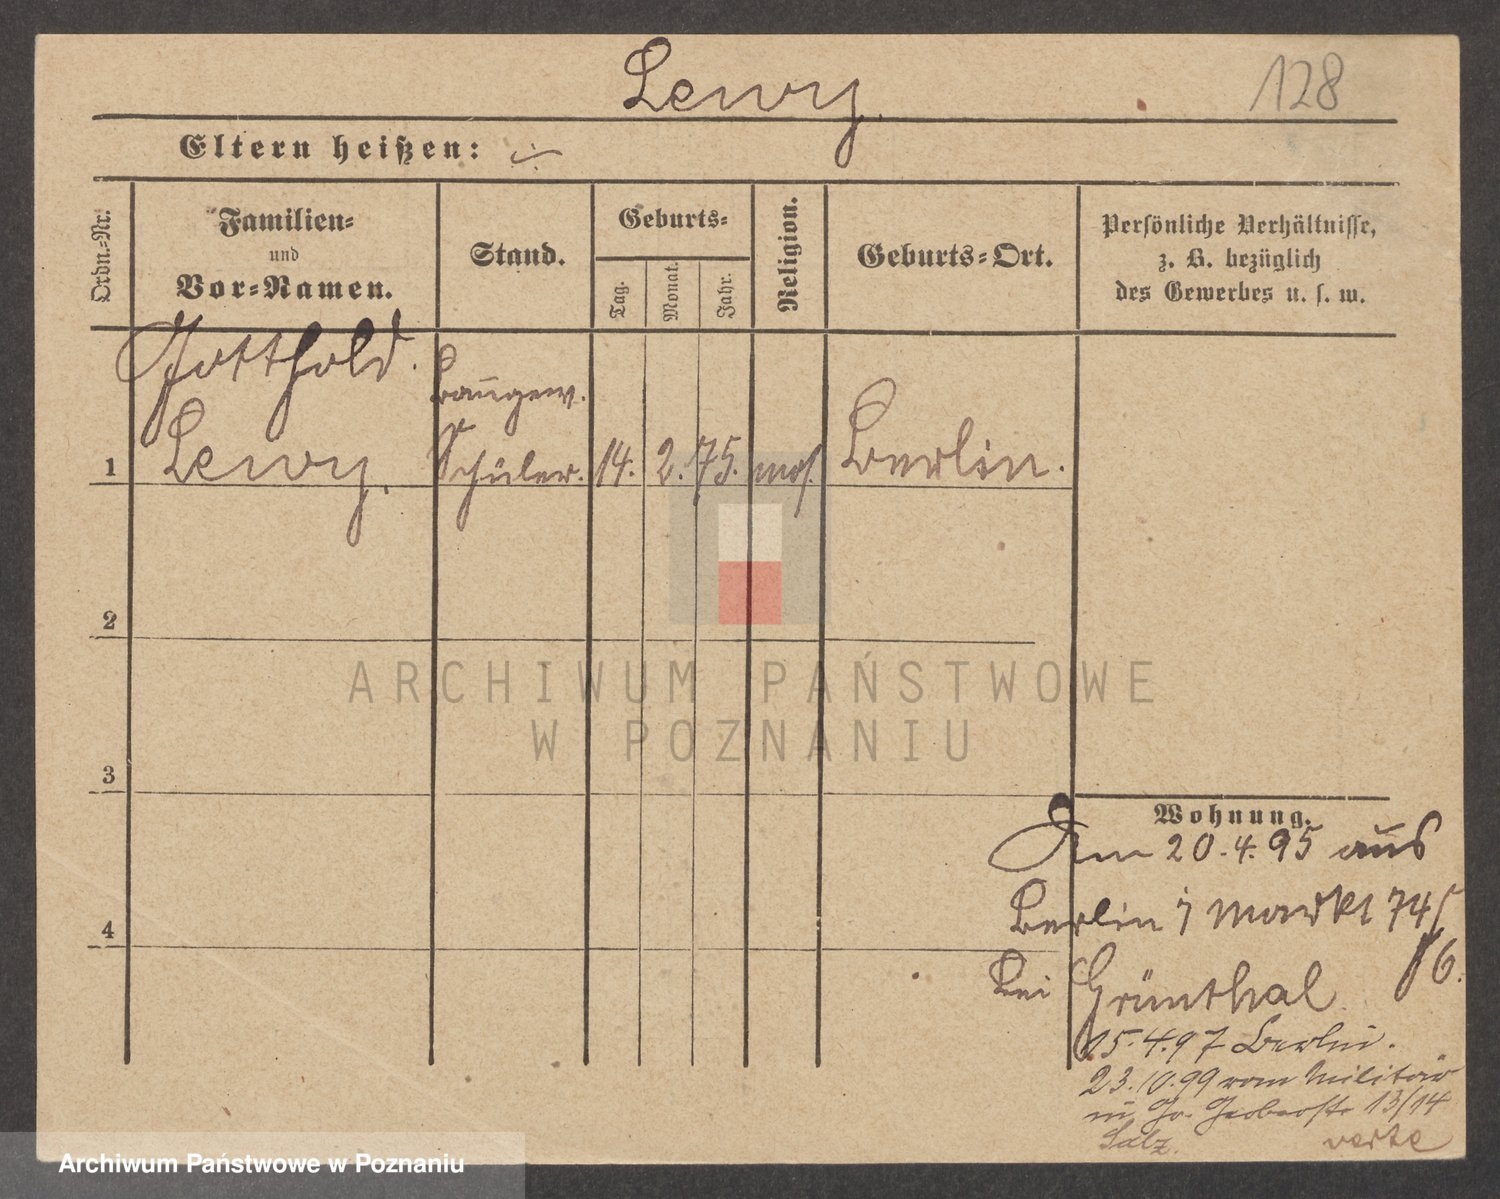 Lewy
128
Eltern heißen:
Ordn.-Nr.
Familien-
und
Vor-Namen.
Stand.
Geburts-
Tag.
Monat.
Jahr.
Religion.
Geburts-Ort.
Persönliche Verhältnisse,
z. B. bezüglich
des Gewerbes u. s. w.
Gotthold
1 Lewy.
Baugew.
Schüler.
14. 2. 75. mos. Berlin.
2
3
4
ARCHIWUM PAŃSTWOWE
W POZNANIU
Wohnung.
Am 20.4.95 aus
Berlin Markt 74/
76.
bei Grünthal
15.4.97 Berlin.
23.10.99 vom Militär
Gr. 13/14
Salz.
verte
Archiwum Państwowe w Poznaniu